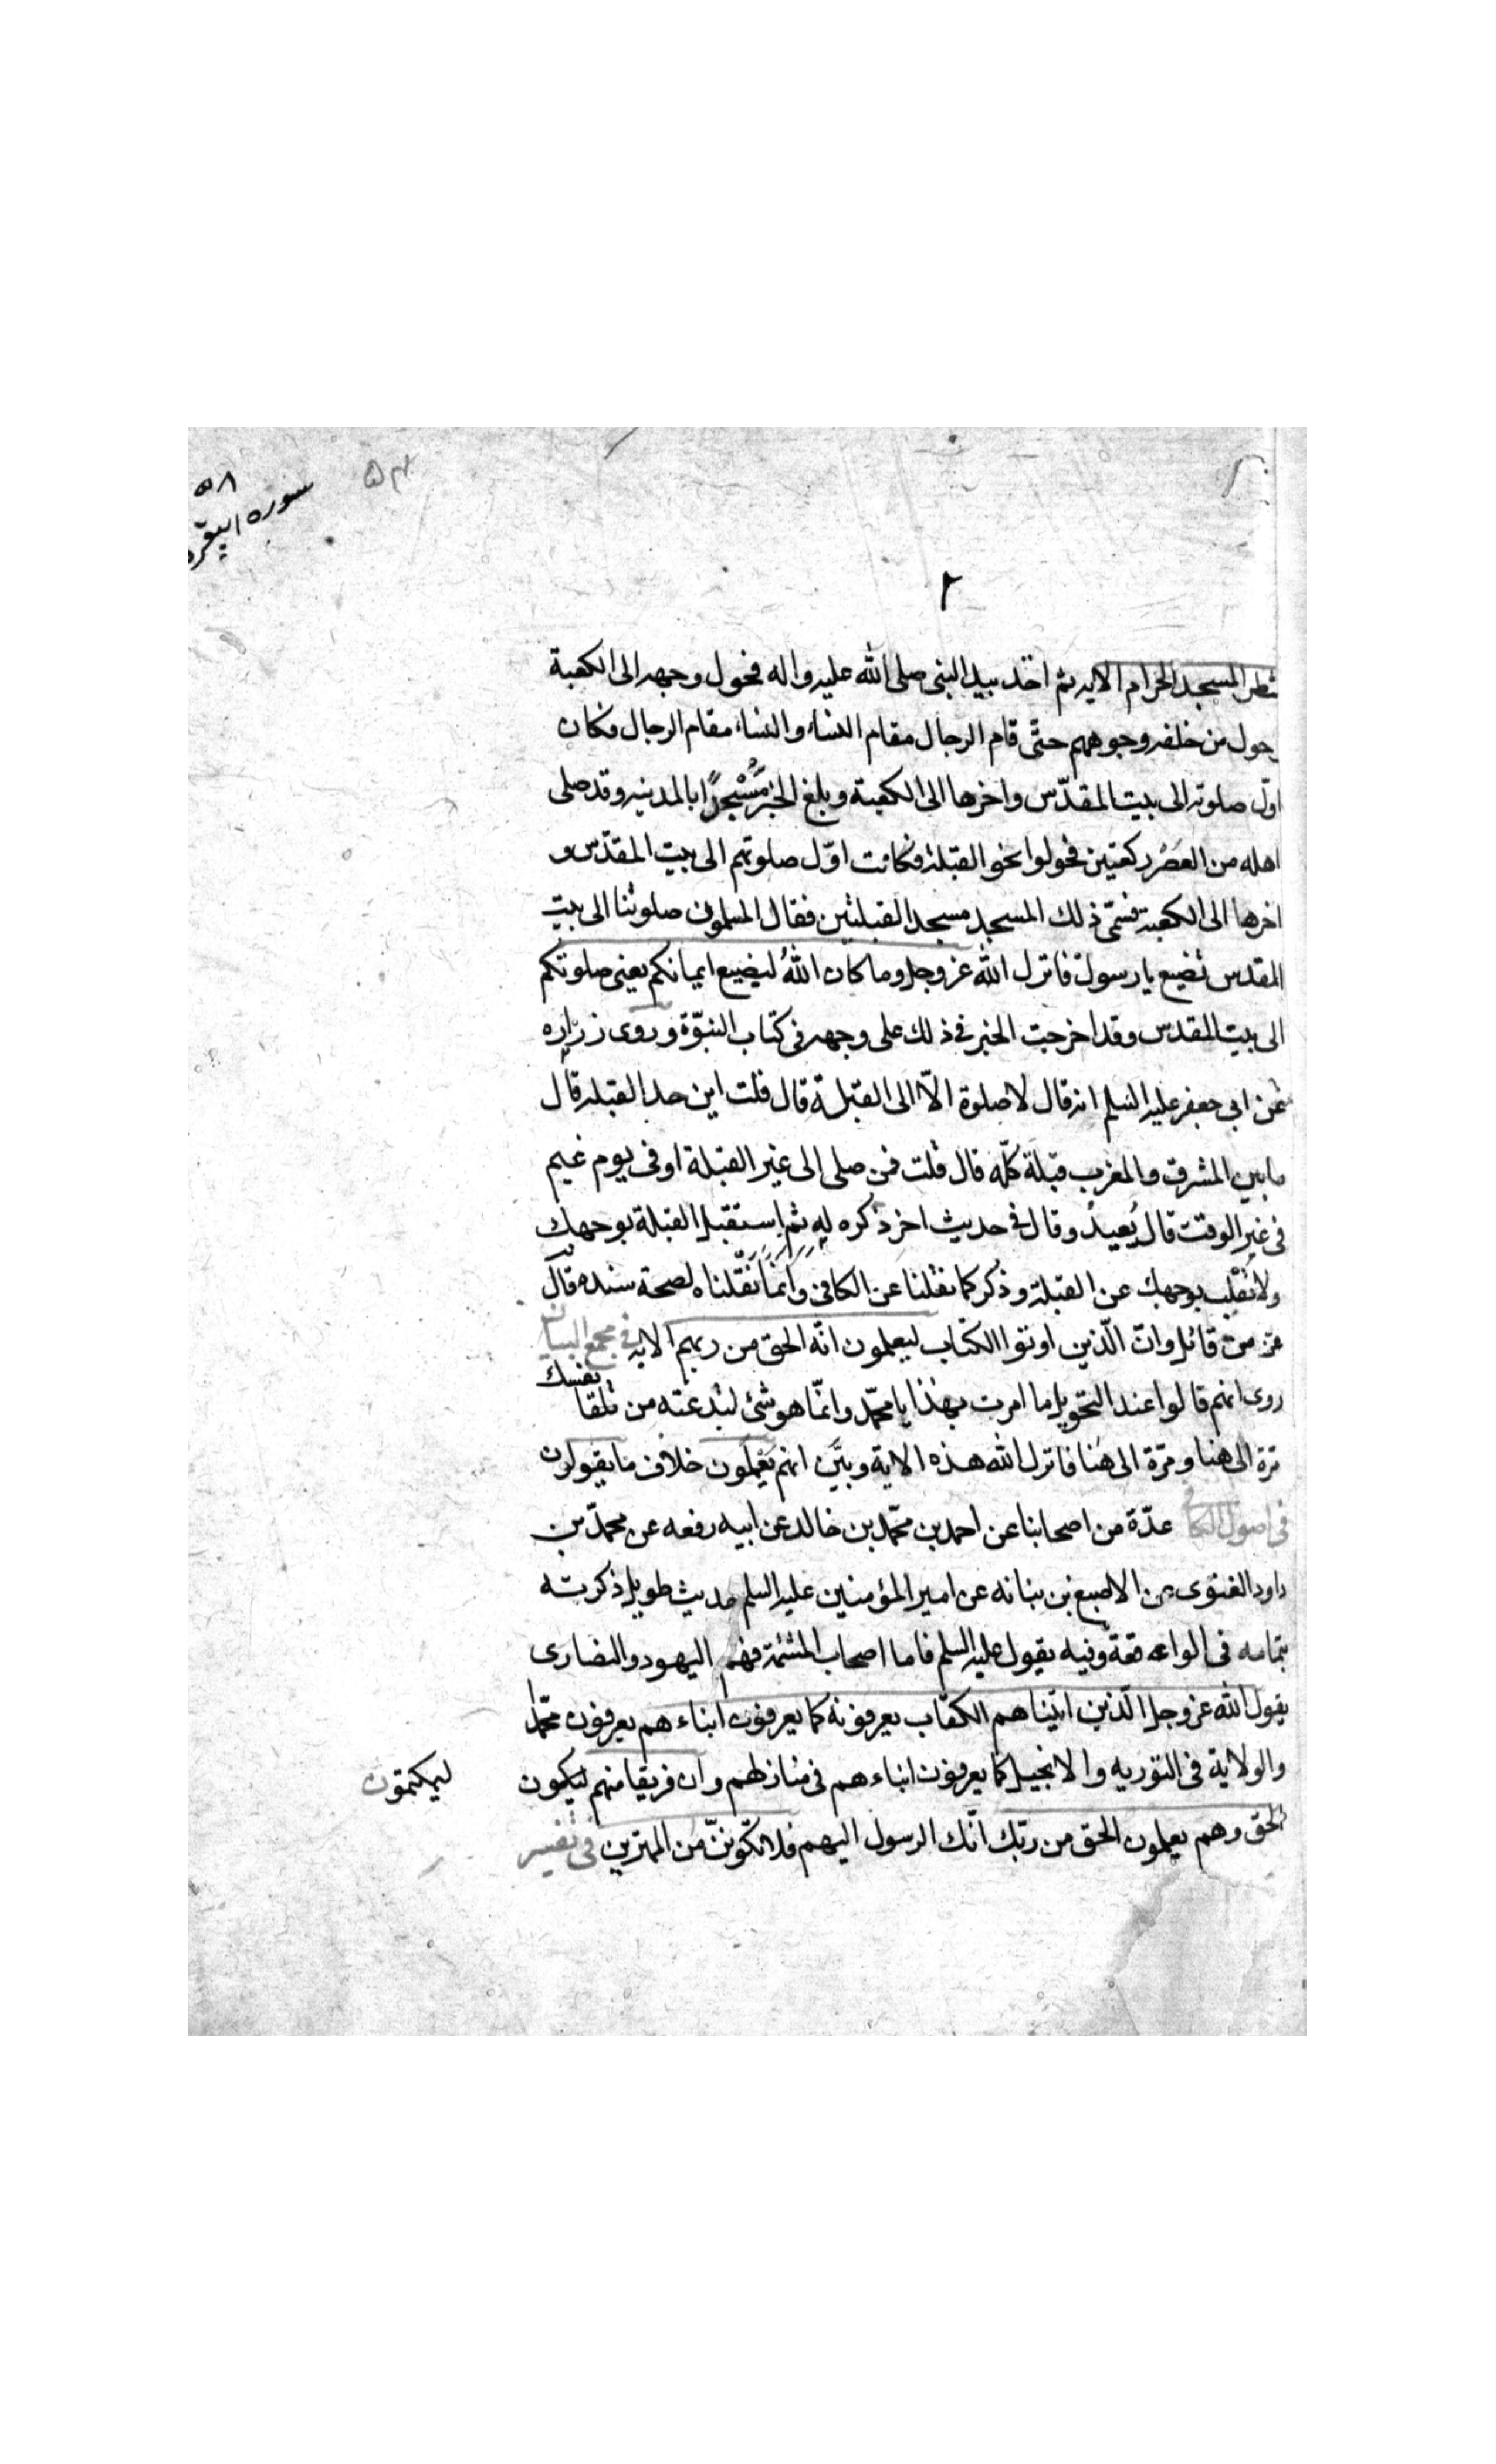 ٥٨
سوره البقره
٢
شطر المسجد الحرام الايه ثم اخذ بيد النبى صلى الله عليه واله فحول وجهه الى الكعبة
حول من خلفه وجوههم حتّى قام الرجال مقام النساء والنساء مقام الرجال فكان
اوّل صلوته الى بيت المقدّس واخرها الى الكعبة وبلغ الخبر مَسْجدًا بالمدينه وقد صلى
اهله من العَصْر ركعتين فحولوا نحو القبلة فكانت اوّل صلوتهم الى بيت المقدّس و
اخرها الى الكعبة فسمّى ذلك المسجد مسجد القبلتين فقال المسلمون صلوتنا الى بيت
المقدس تضيع يا رسول فانزل الله عز وجل وما كان اللهُ ليضيع ايمانكم يعنى صلوتكم
الى بيت المقدس وقد اخرجت الخبر فى ذلك على وجهه فى كتاب النبوّة وروى زراره
عن ابى جعفر عليه السلم انه قال لا صلوة الّا الى القبلة قال قلت اين حد القبله قال
ما بين المشرق والمغرب قبلة كلّه قال قلت فمن صلى الى غير القبلة او فى يوم غيم
فى غير الوقت قال يُعيدُ وقال فى حديث اخر ذكره له ثم استقبل القبلة بوجهك
ولا تقلب بوجهك عن القبلة وذكر كما نقلنا عن الكافى وانّما نقلناه لصحة سنده قال
عز من قائل وانّ الّذين اوتوا الكتاب ليعلمون انّه الحق من ربهم الايه فى مجمع البيان
روى انهم قالوا عند التحويل ما امرت بهذا يا محمّد وانّما هو شئ تبتدعته من تلقا نفسك
مرّة الى هنا ومرّة الى هَنا فانزل الله هذه الاية وبيّن انهم يَعْلمون خلاف ما يقولون
فى اصول الكافى عدّة من اصحابنا عن احمد بن محمّد بن خالد عن ابيه رفعه عن محمّد بن
داود الغنوى عن الاصبغ بن بناته عن امير المؤمنين عليه السلم حديث طويل ذكرته
بتمامه فى الواقعة وفيه يقول عليه السلم فاما اصحاب المشئمة فهم اليهود والنصارى
يقول الله عز وجل الّذين اتيناهم الكتاب يعرفونه كما يعرفون ابناءهم يعرفون محمّدا
والولاية فى التوريه والانجيل كما يعرفون ابناءهم فى منازلهم وان فريقا منهم ليكون ليكتمون
الحق وهم يعلمون الحق من ربّك انّك الرسول اليهم فلا تكوننّ من الممترين فى تفسير